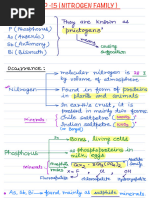 P-15 [NITROGEN FAMILY]
P (Phosphorus)
As (Arsenic)
Sb (Antimony)
Bi (Bismuth)
They are known as
"pnictogens"
causing
suffocation
Occurrence:
Nitrogen
molecular nitrogen is 78 %
by volume of atmosphere.
Found in form of proteins
in plants and animals.
Minerals
Found in earth's crust
Chile saltpetre (NaNO3)
Indian saltpetre (KNO3)
Phosphorus
Bones, living cells
phosphoproteins in
milk, eggs
Minerals
As, Sb, Bi → found mainly as sulphide minerals